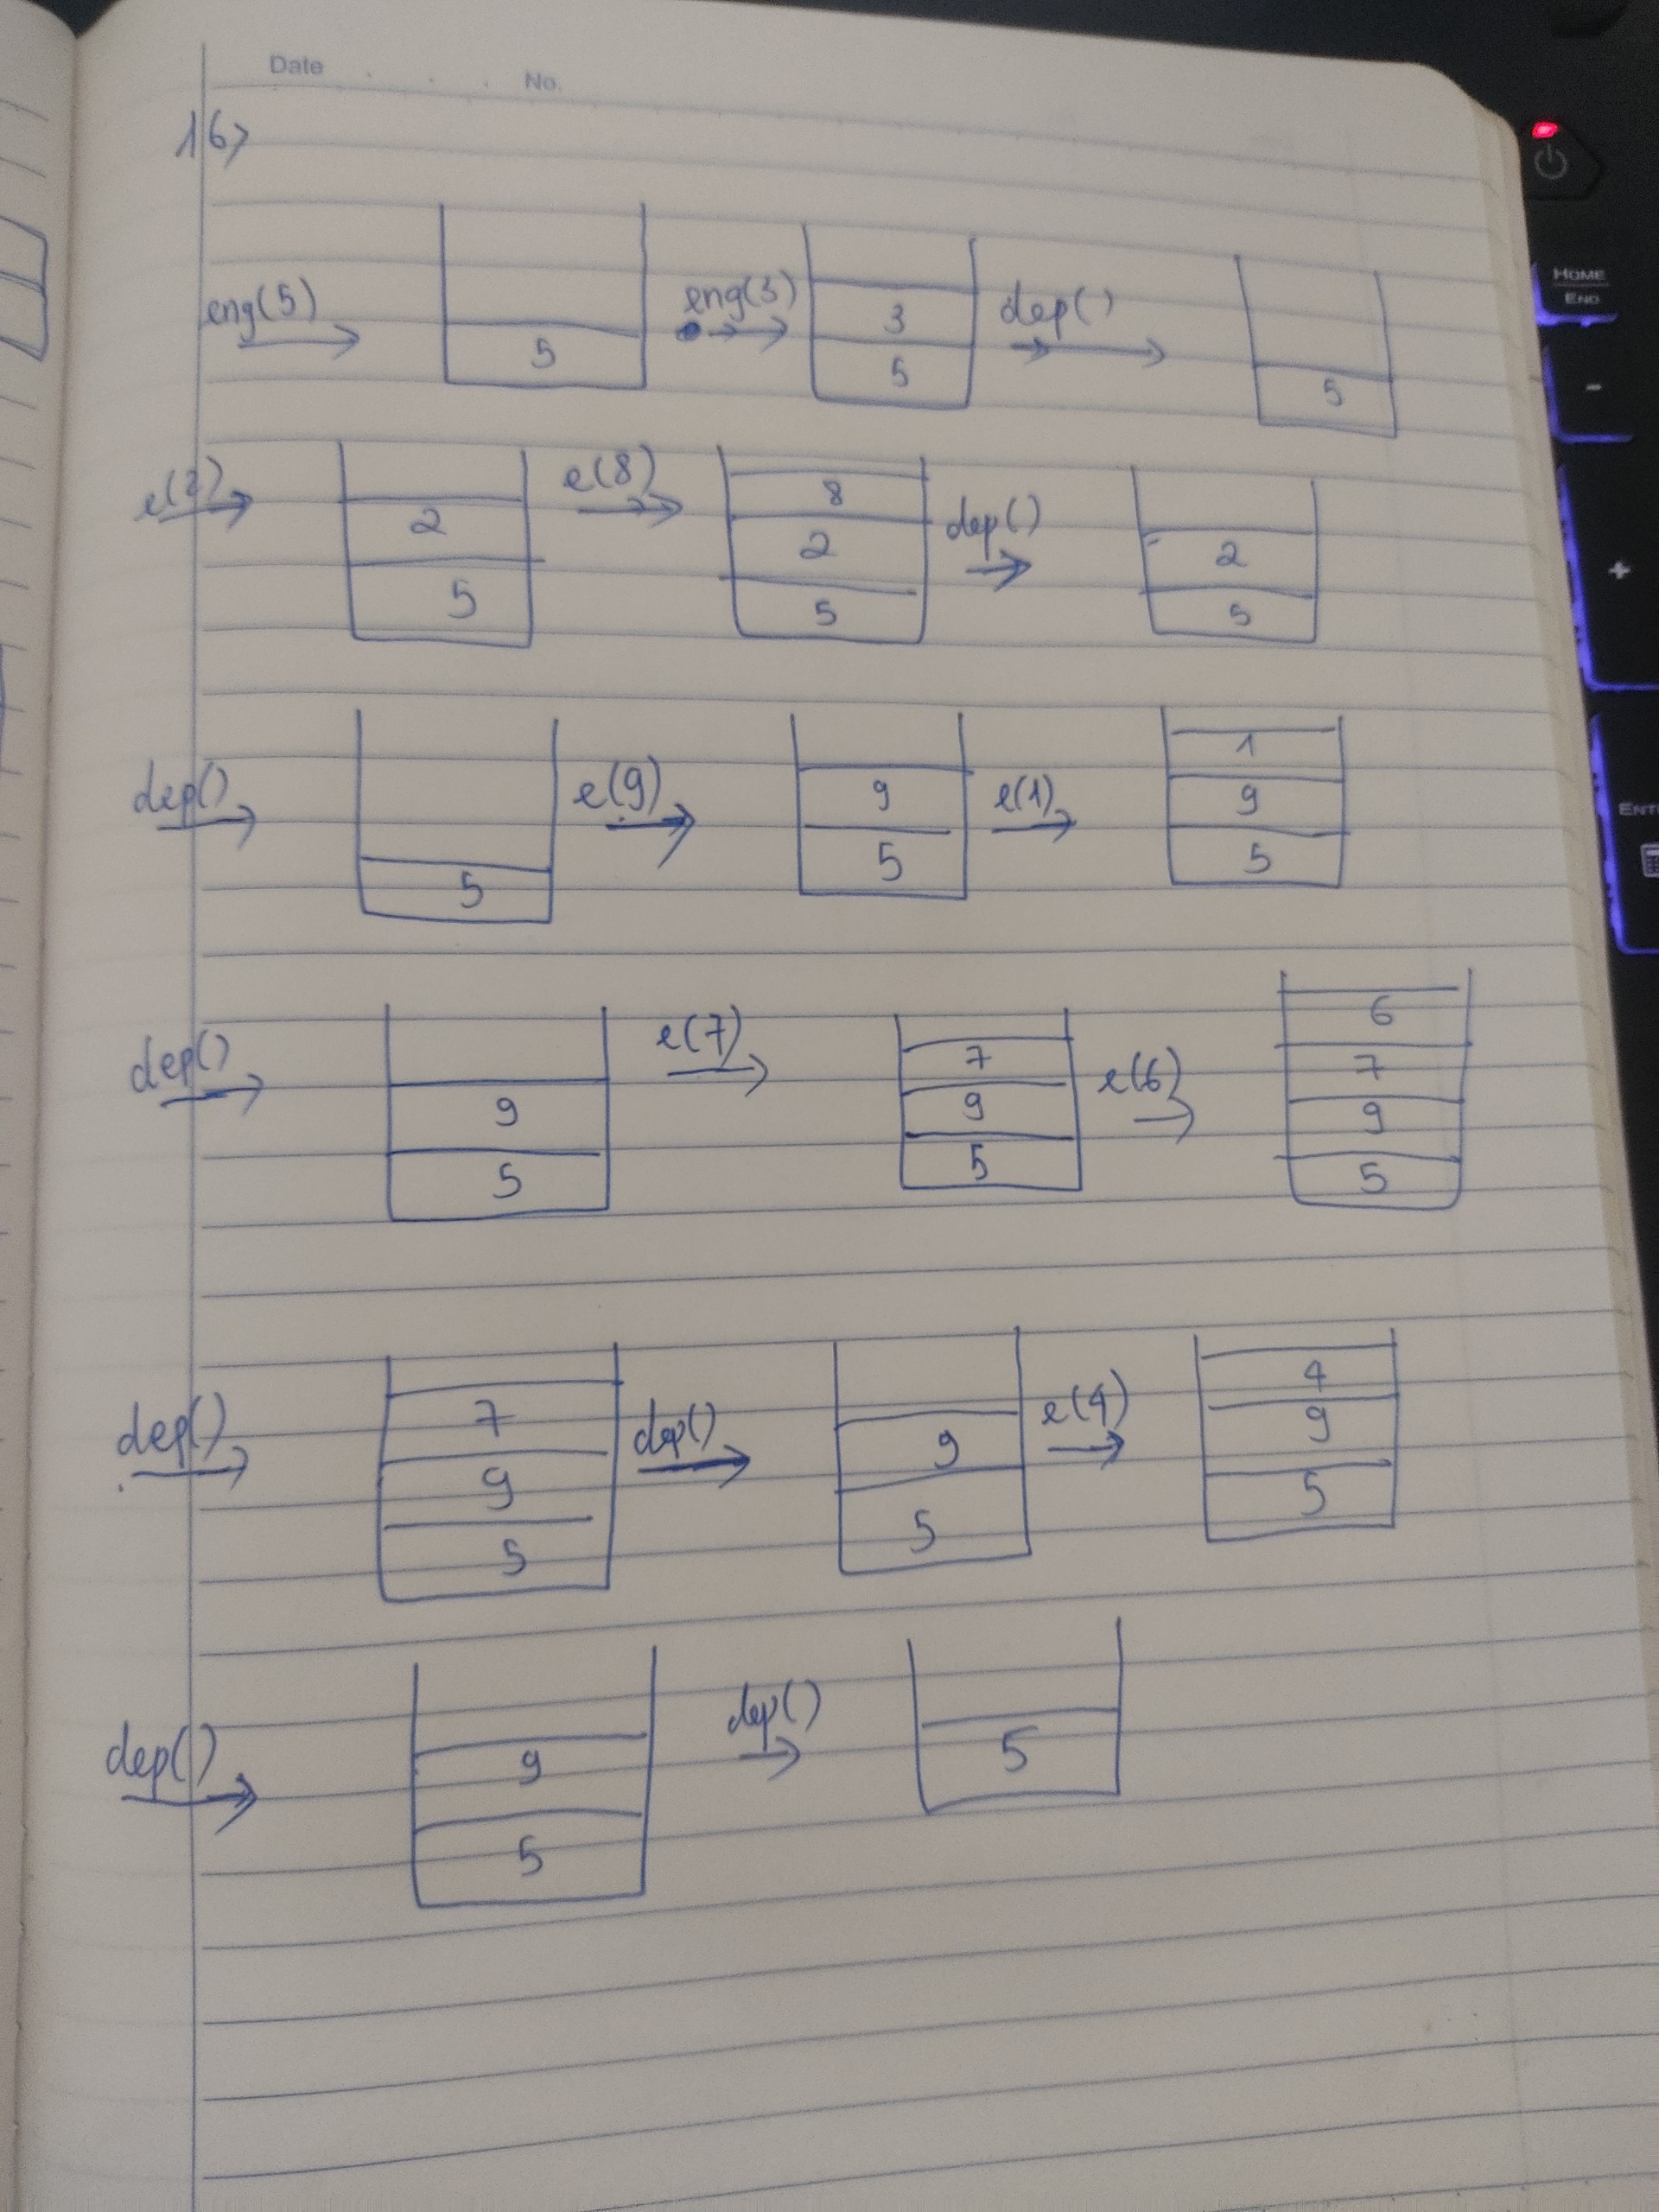 Date No.
16>
eng(5) 5 eng(3) 3 5 dep() 5
e(2) 2 5 e(8) 8 2 5 dep() 2 5
dep() 5 e(9) 9 5 e(1) 1 9 5
dep() 9 5 e(7) 7 9 5 e(6) 6 7 9 5
dep() 7 9 5 dep() 9 5 e(4) 4 9 5
dep() 9 5 dep() 5
HOME
END
-
+